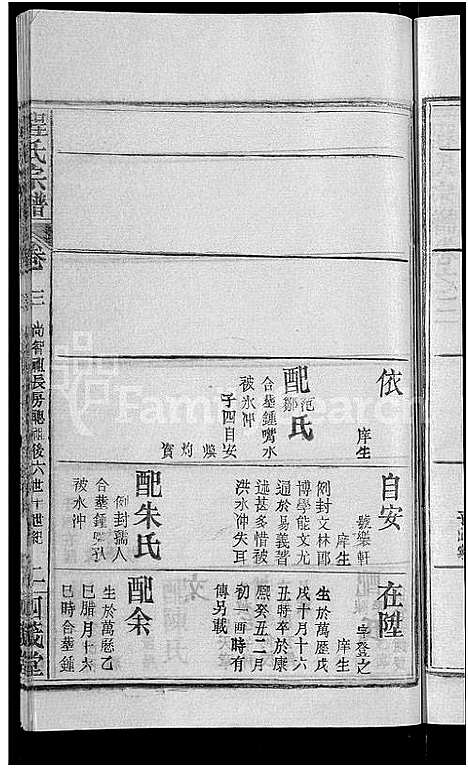 程氏宗譜
卷三
尚智祖長房聰祖後六世十世紀
依
庠生
配范鄒氏
合墓鍾嘴水
被氷冲
子四自安
煥灼寳
自安
號樂軒
庠生
例封文林郎
博學能文尤
通於易義著
述甚多惜被
洪水冲失耳
配朱氏
例封孺人
合墓鍾
被水冲
在陞
字登之
庠生
生於萬歷戊
戌十月十六
丑時卒於康
熙癸丑二月
初一酉時有
傳另載
配余
生於萬歷乙
巳腊月十六
巳時合墓鍾
FamilySearch